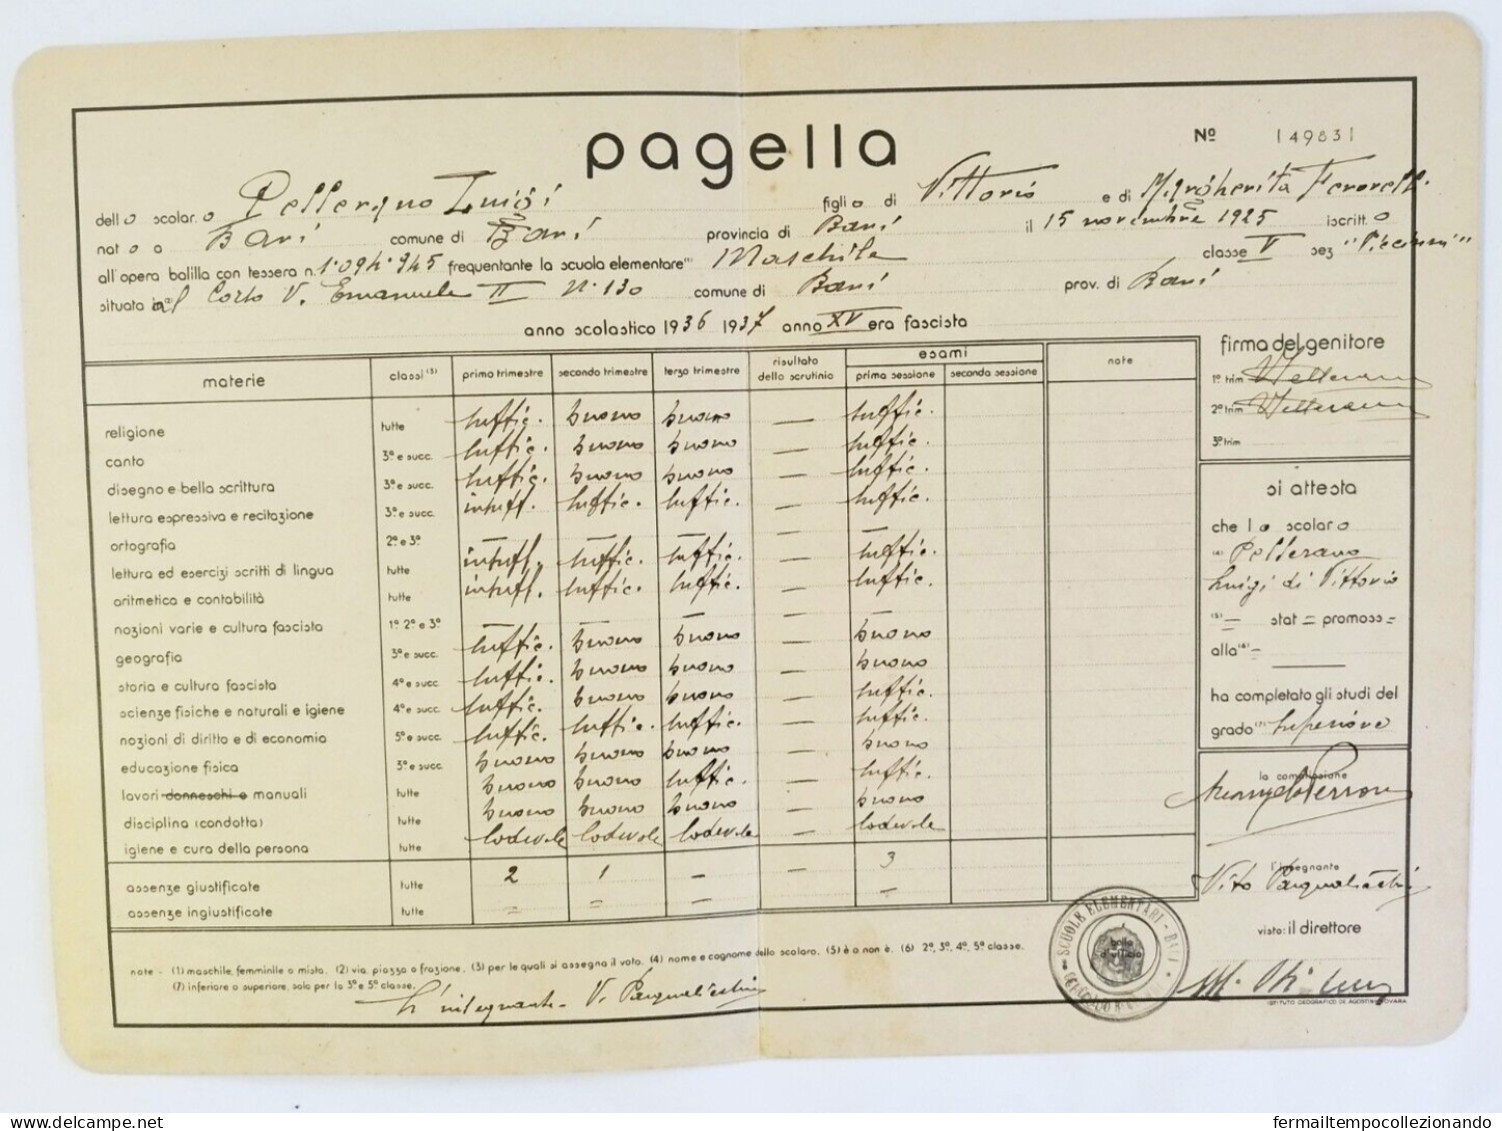 pagella
Nº 149831
dello scolaro Pellerano Luigi figlio di Vittorio e di Margherita Ferorelli
nato a Bari comune di Bari provincia di Bari il 15 novembre 1925 iscritto
all'opera balilla con tessera n. 1·094·945 frequentante la scuola elementare⁽¹⁾ Maschile classe V sez "Piccinni"
situata in al Corso V. Emanuele II N·130 comune di Bari prov. di Bari
anno scolastico 1936 1937 anno XV era fascista
materie classi (3) primo trimestre secondo trimestre terzo trimestre risultato dello scrutinio esami prima sessione seconda sessione note
religione tutte suffic. buono buono — suffic.
canto 3ª e succ. suffic. buono buono — suffic.
disegno e bella scrittura 3ª e succ. suffic. buono buono — suffic.
lettura espressiva e recitazione 3ª e succ. insuff. suffic. suffic. — suffic.
ortografia 2ª e 3ª — — — — —
lettura ed esercizi scritti di lingua tutte insuff. suffic. suffic. — suffic.
aritmetica e contabilità tutte insuff. suffic. suffic. — suffic.
nozioni varie e cultura fascista 1ª 2ª e 3ª — — — — —
geografia 3ª e succ. suffic. buono buono — buono
storia e cultura fascista 4ª e succ. suffic. buono buono — buono
scienze fisiche e naturali e igiene 4ª e succ. suffic. buono buono — suffic.
nozioni di diritto e di economia 5ª e succ. suffic. suffic. suffic. — suffic.
educazione fisica 3ª e succ. buono buono buono — buono
lavori donneschi e manuali tutte buono buono suffic. — suffic.
disciplina (condotta) tutte buono buono buono — buono
igiene e cura della persona tutte lodevole lodevole lodevole — lodevole
assenze giustificate tutte 2 1 – – 3
assenze ingiustificate tutte = = – –
firma del genitore
1º trim VPellerano
2º trim VPellerano
3º trim
si attesta
che lo scolaro
(4) Pellerano
Luigi di Vittorio
(5) = stat = promoss =
alla (6) =
ha completato gli studi del
grado (7) superiore
la commissione
l'insegnante
Vito Pasqualicchio
visto: il direttore
SCUOLE ELEMENTARI - BARI
bollo d'ufficio
note - (1) maschile, femminile o mista. (2) via, piazza o frazione. (3) per le quali si assegna il voto. (4) nome e cognome dello scolaro. (5) è o non è. (6) 2ª, 3ª, 4ª, 5ª classe.
(7) inferiore o superiore, solo per la 3ª e 5ª classe.
L'insegnante - V. Pasqualicchio
ISTITUTO GEOGRAFICO DE AGOSTINI - NOVARA
fermailtempocollezionando
delcampe.net